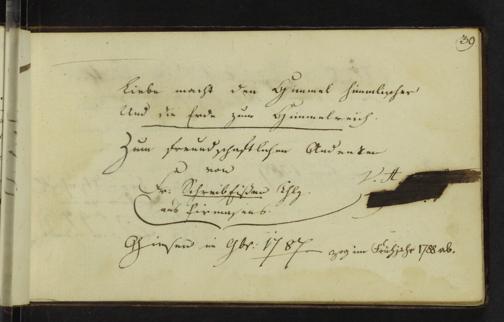 39
Liebe macht den Himmel himmlischer
Und die Erde zum Himmelreich.
Zum freundschaftlichen Andenken
von
Fr: thlg.
aus Pirmasens.
V. H
Giesen in 8br: 1787
zog im Frühjahr 1788 ab.